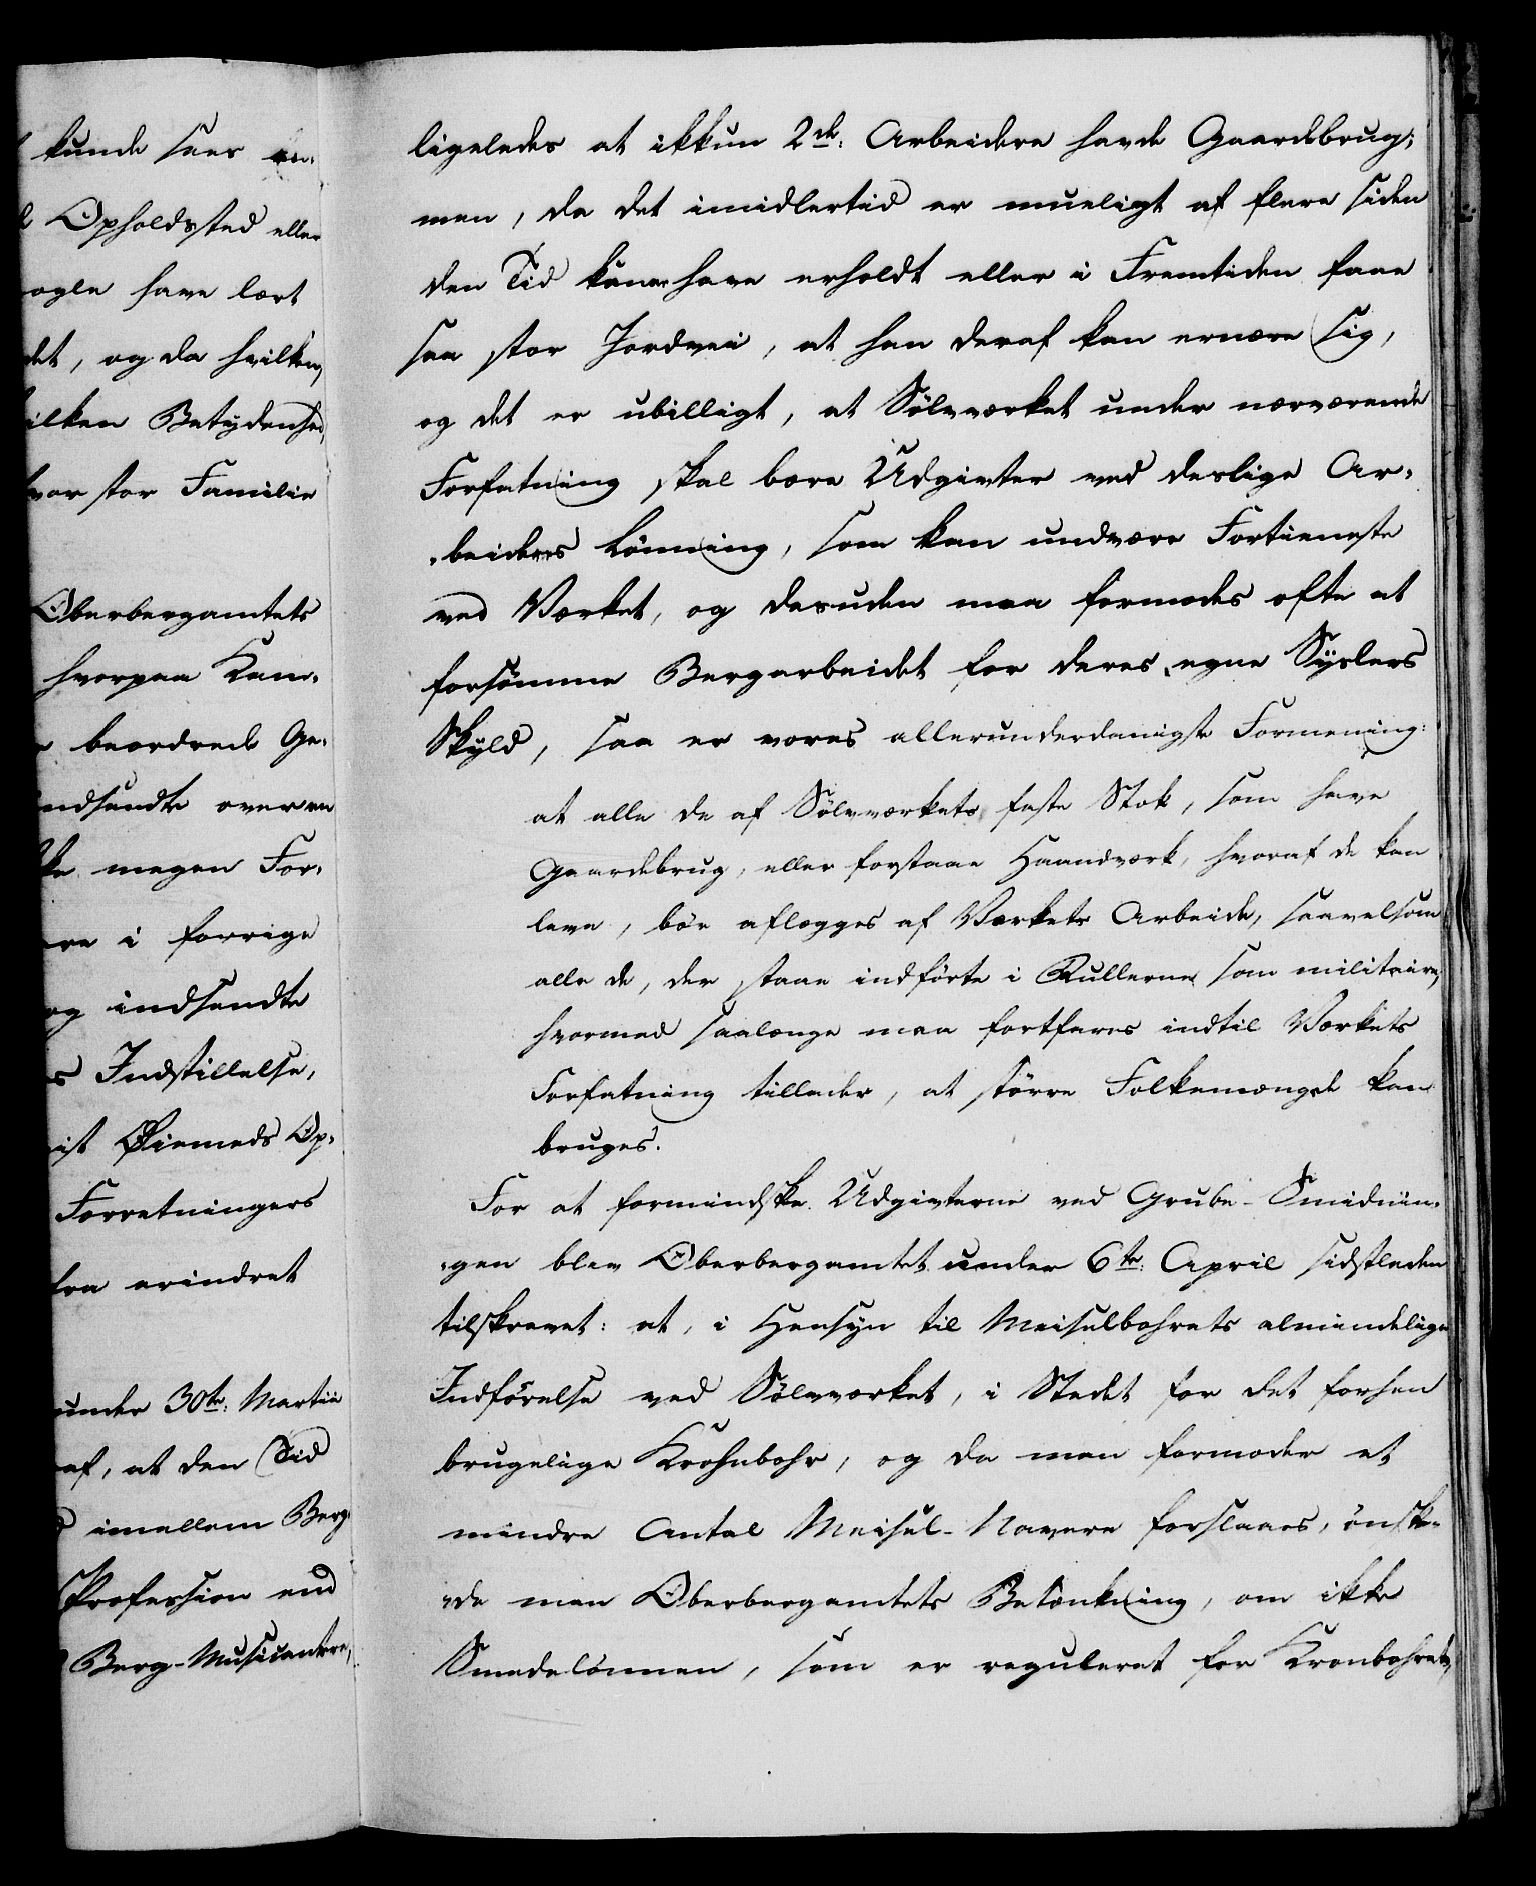 kunde saes en-
Opholdsted eller
nogle have lært
det, og da hvilken,
hvilken Betydenhed,
hvor stor Familie
Oberbergamtets
hvorpaa Kam-
beordrede Ge-
indsendte over en
megen For-
i forrige
og indsendte
Indstillelse,
Øiemeds Op-
Forretningers
erindret
under 30te Martii
af, at den Tid
imellem Berg-
Profession end
Berg-Musicantere,
ligeledes at ikkun 2de: Arbeidere havde Gaardebrug;
men, da det imidlertid er mueligt af flere siden
den Tid kunne have erholdt eller i Fremtiden faae
saa stor Jordvei, at han deraf kan ernære sig,
og det er ubilligt, at Sölvværket under nærværende
Forfatning skal bære Udgivter ved deslige Ar-
-beideres Lönning, som kan undvære Fortieneste
ved Værket, og desuden maa formodes ofte at
forsömme Bergarbeidet for deres egne Syslers
Skyld, saa er vores allerunderdanigste Formening:
at alle de af Sölvværkets faste Stok, som have
Gaardebrug, eller forstaae Haandværk, hvoraf de kan
leve, bör aflægges af Værkets Arbeide, saavelsom
alle de, der staae indförte i Rullerne som militaire,
hvormed saalænge maa fortfares indtil Værkets
Forfatning tillader, at större Folkemængde kan
bruges.
For at formindske Udgivterne ved Grube-Smidnin-
-gen blev Oberbergamtet under 6te: April sidstleden
tilskrevet: at, i Hensyn til Meiselbohrets almindelige
Indförelse ved Sölvværket, i Stedet for det forhen
brugelige Krohnbohr, og da man formoder et
mindre Antal Meisel-Navere forslaaes, önske-
-de man Oberbergamtets Betænkning, om ikke
Smedelönnen, som er reguleret for Kronbohrets,